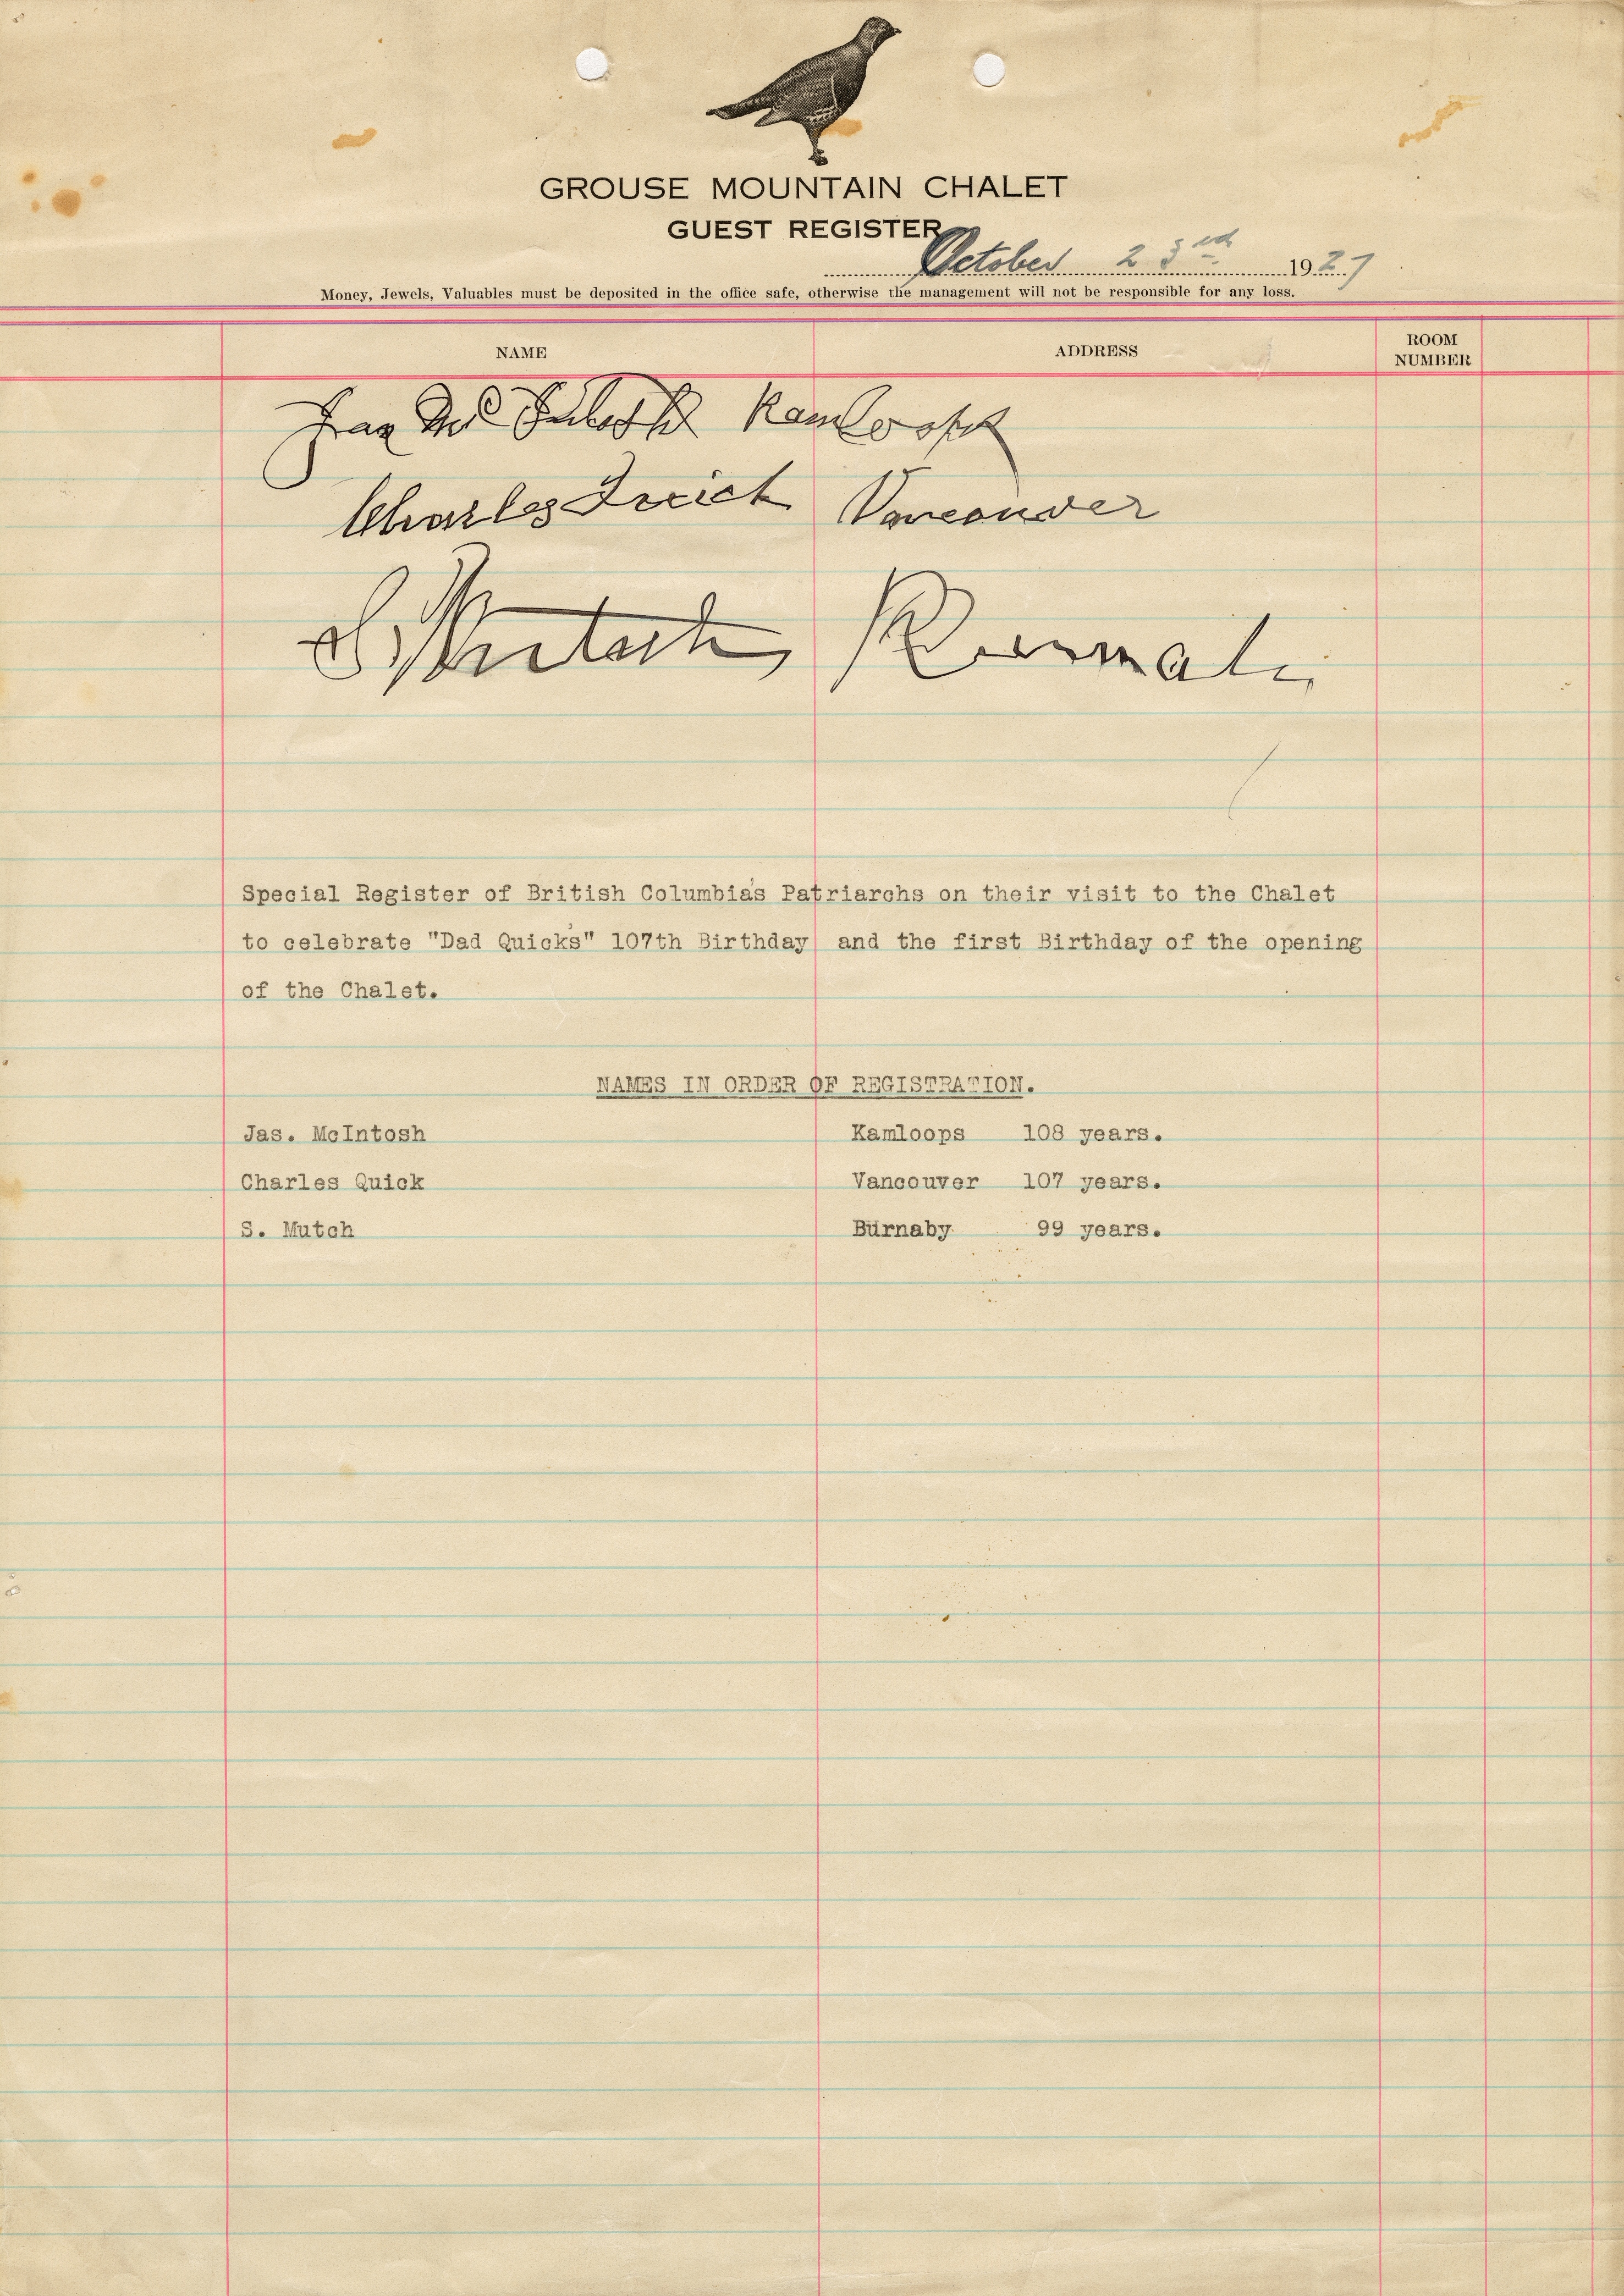 GROUSE MOUNTAIN CHALET
GUEST REGISTER
October 23rd 1927
Money, Jewels, Valuables must be deposited in the office safe, otherwise the management will not be responsible for any loss.
NAME ADDRESS ROOM NUMBER
Jas McIntosh Kamloops
Charles Quick Vancouver
S. Mutch,
Special Register of British Columbia's Patriarchs on their visit to the Chalet
to celebrate "Dad Quick's" 107th Birthday and the first Birthday of the opening
of the Chalet.
NAMES IN ORDER OF REGISTRATION.
Jas. McIntosh Kamloops 108 years.
Charles Quick Vancouver 107 years.
S. Mutch Burnaby 99 years.